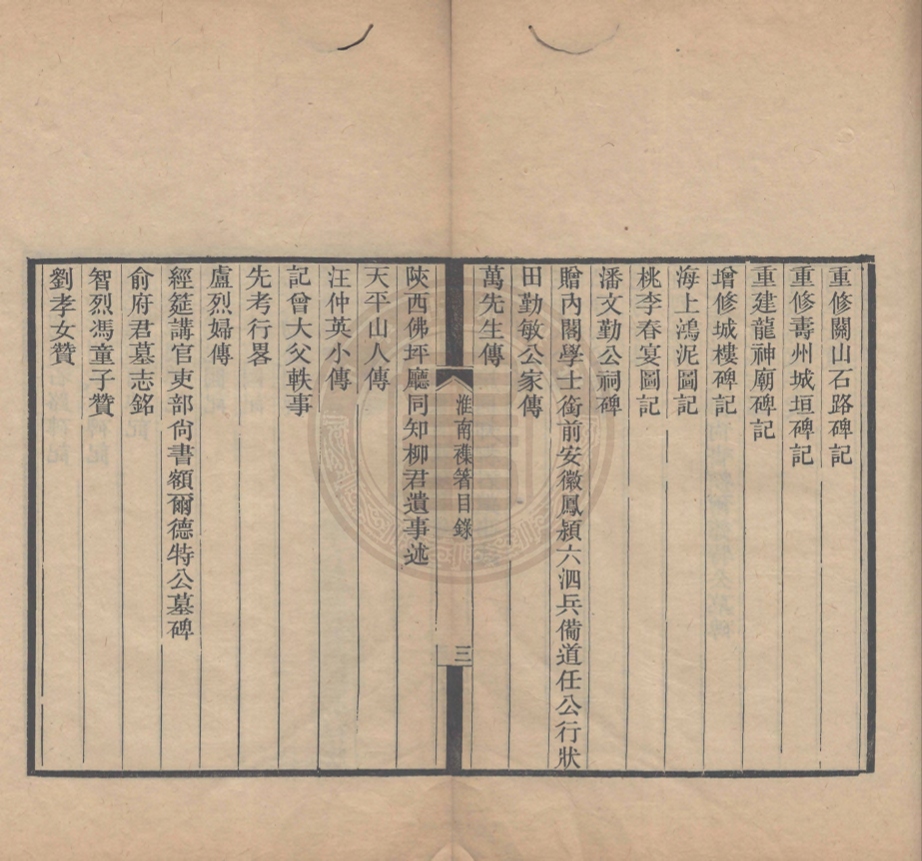 重修關山石路碑記
重修壽州城垣碑記
重建龍神廟碑記
增修城樓碑記
海上鴻泥圖記
桃李春宴圖記
潘文勤公祠碑
贈內閣學士銜前安徽鳳潁六泗兵備道任公行狀
田勤敏公家傳
萬先生傳
淮南襍箸目錄
三
陝西佛坪廳同知柳君遺事述
天平山人傳
汪仲英小傳
記曾大父軼事
先考行畧
盧烈婦傳
經筵講官吏部尙書額爾德特公墓碑
俞府君墓志銘
智烈馮童子贊
劉孝女贊